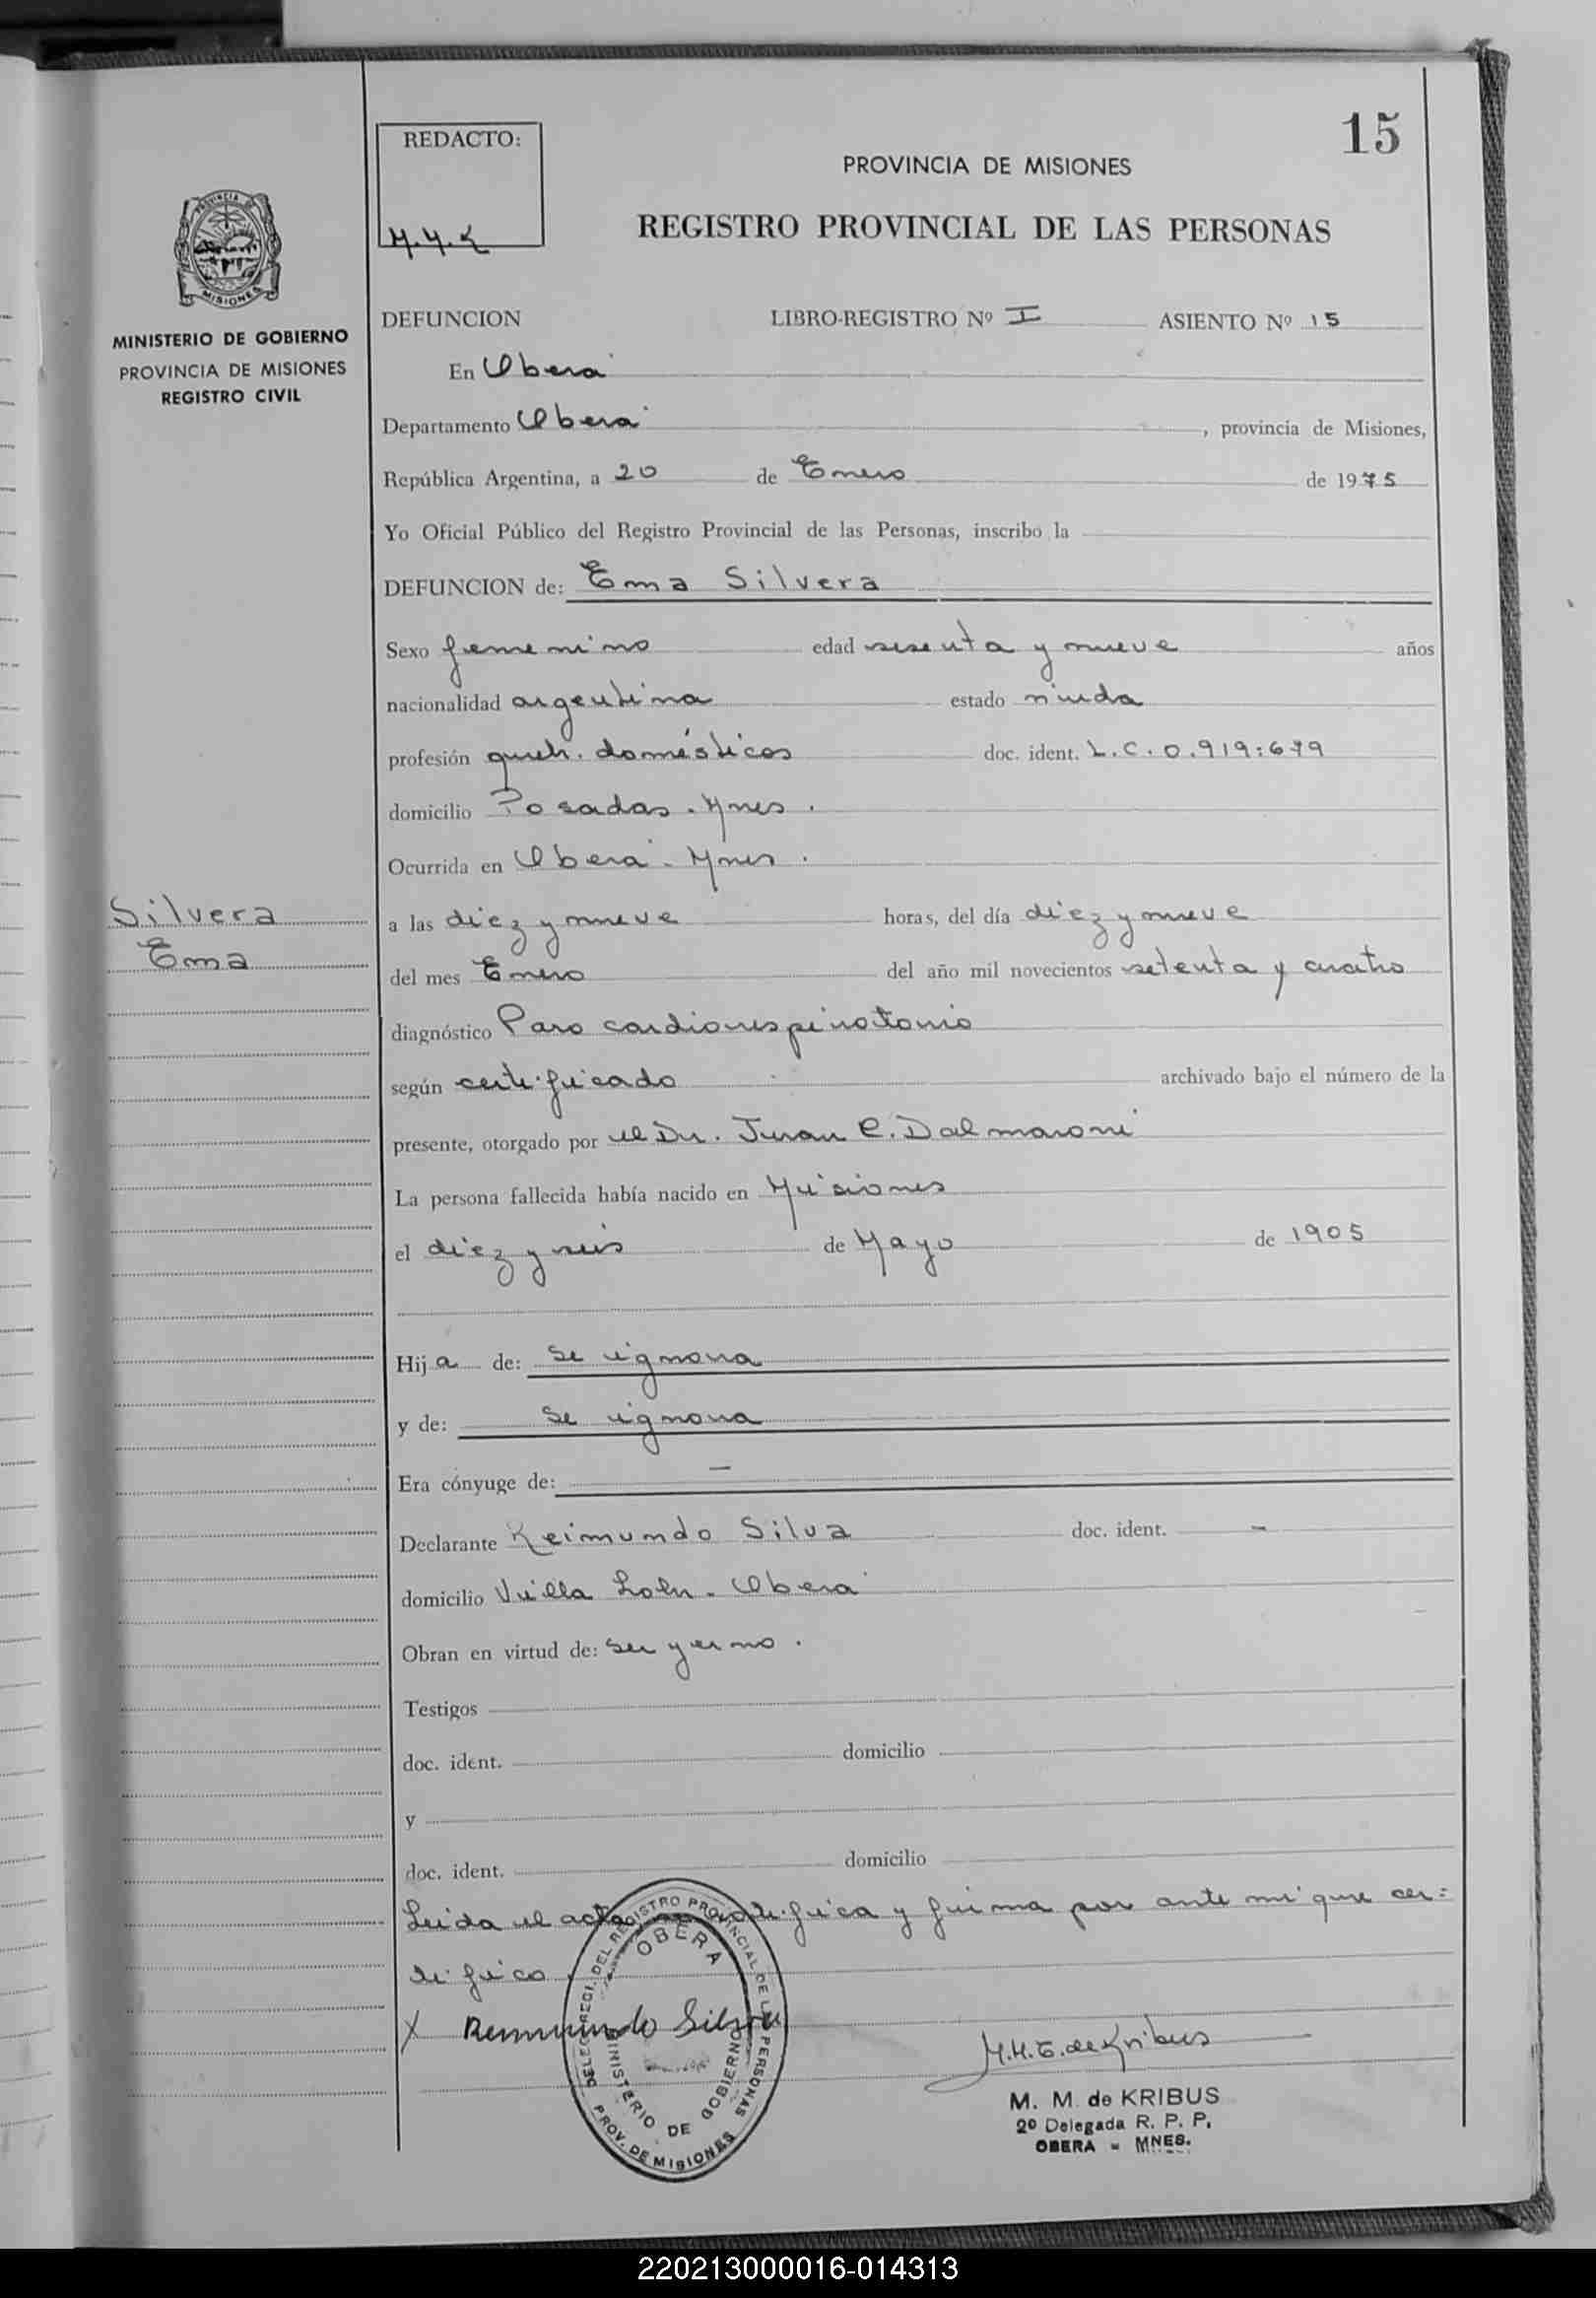 15
REDACTO:
PROVINCIA DE MISIONES
REGISTRO PROVINCIAL DE LAS PERSONAS
PROVINCIA DE
MISIONES
MINISTERIO DE GOBIERNO
PROVINCIA DE MISIONES
REGISTRO CIVIL
DEFUNCION LIBRO-REGISTRO Nº I ASIENTO Nº 15
En Oberá
Departamento Oberá, provincia de Misiones,
República Argentina, a 20 de Enero de 1975
Yo Oficial Público del Registro Provincial de las Personas, inscribo la
DEFUNCION de: Ema Silvera
Sexo femenino edad sesenta y nueve años
nacionalidad argentina estado viuda
profesión queh. domésticos doc. ident. L.C. 0.919:679
domicilio Posadas. Mnes.
Ocurrida en Oberá. Mnes.
Silvera
Ema
a las diez y nueve horas, del día diez y nueve
del mes Enero del año mil novecientos setenta y cuatro
diagnóstico Paro cardiorespiratorio
según certificado archivado bajo el número de la
presente, otorgado por el Dr. Juan C. Dalmaroni
La persona fallecida había nacido en Misiones
el diez y seis de Mayo de 1905
Hija de: se ignora
y de: se ignora
Era cónyuge de: —
Declarante Reimundo Silva doc. ident. -
domicilio Villa - Oberá
Obran en virtud de: ser yerno.
Testigos
doc. ident. domicilio
y
doc. ident. domicilio
Leida el acta ratifica y firma por ante mi que cer=
tifico
X Remundo Silva
DELEG. REGI. DEL REGISTRO PROVINCIAL DE LAS PERSONAS
OBERA
MINISTERIO DE GOBIERNO
PROV. DE MISIONES
de Kribus
M. M. de KRIBUS
2º Delegada R. P. P.
OBERA - MNES.
220213000016-014313